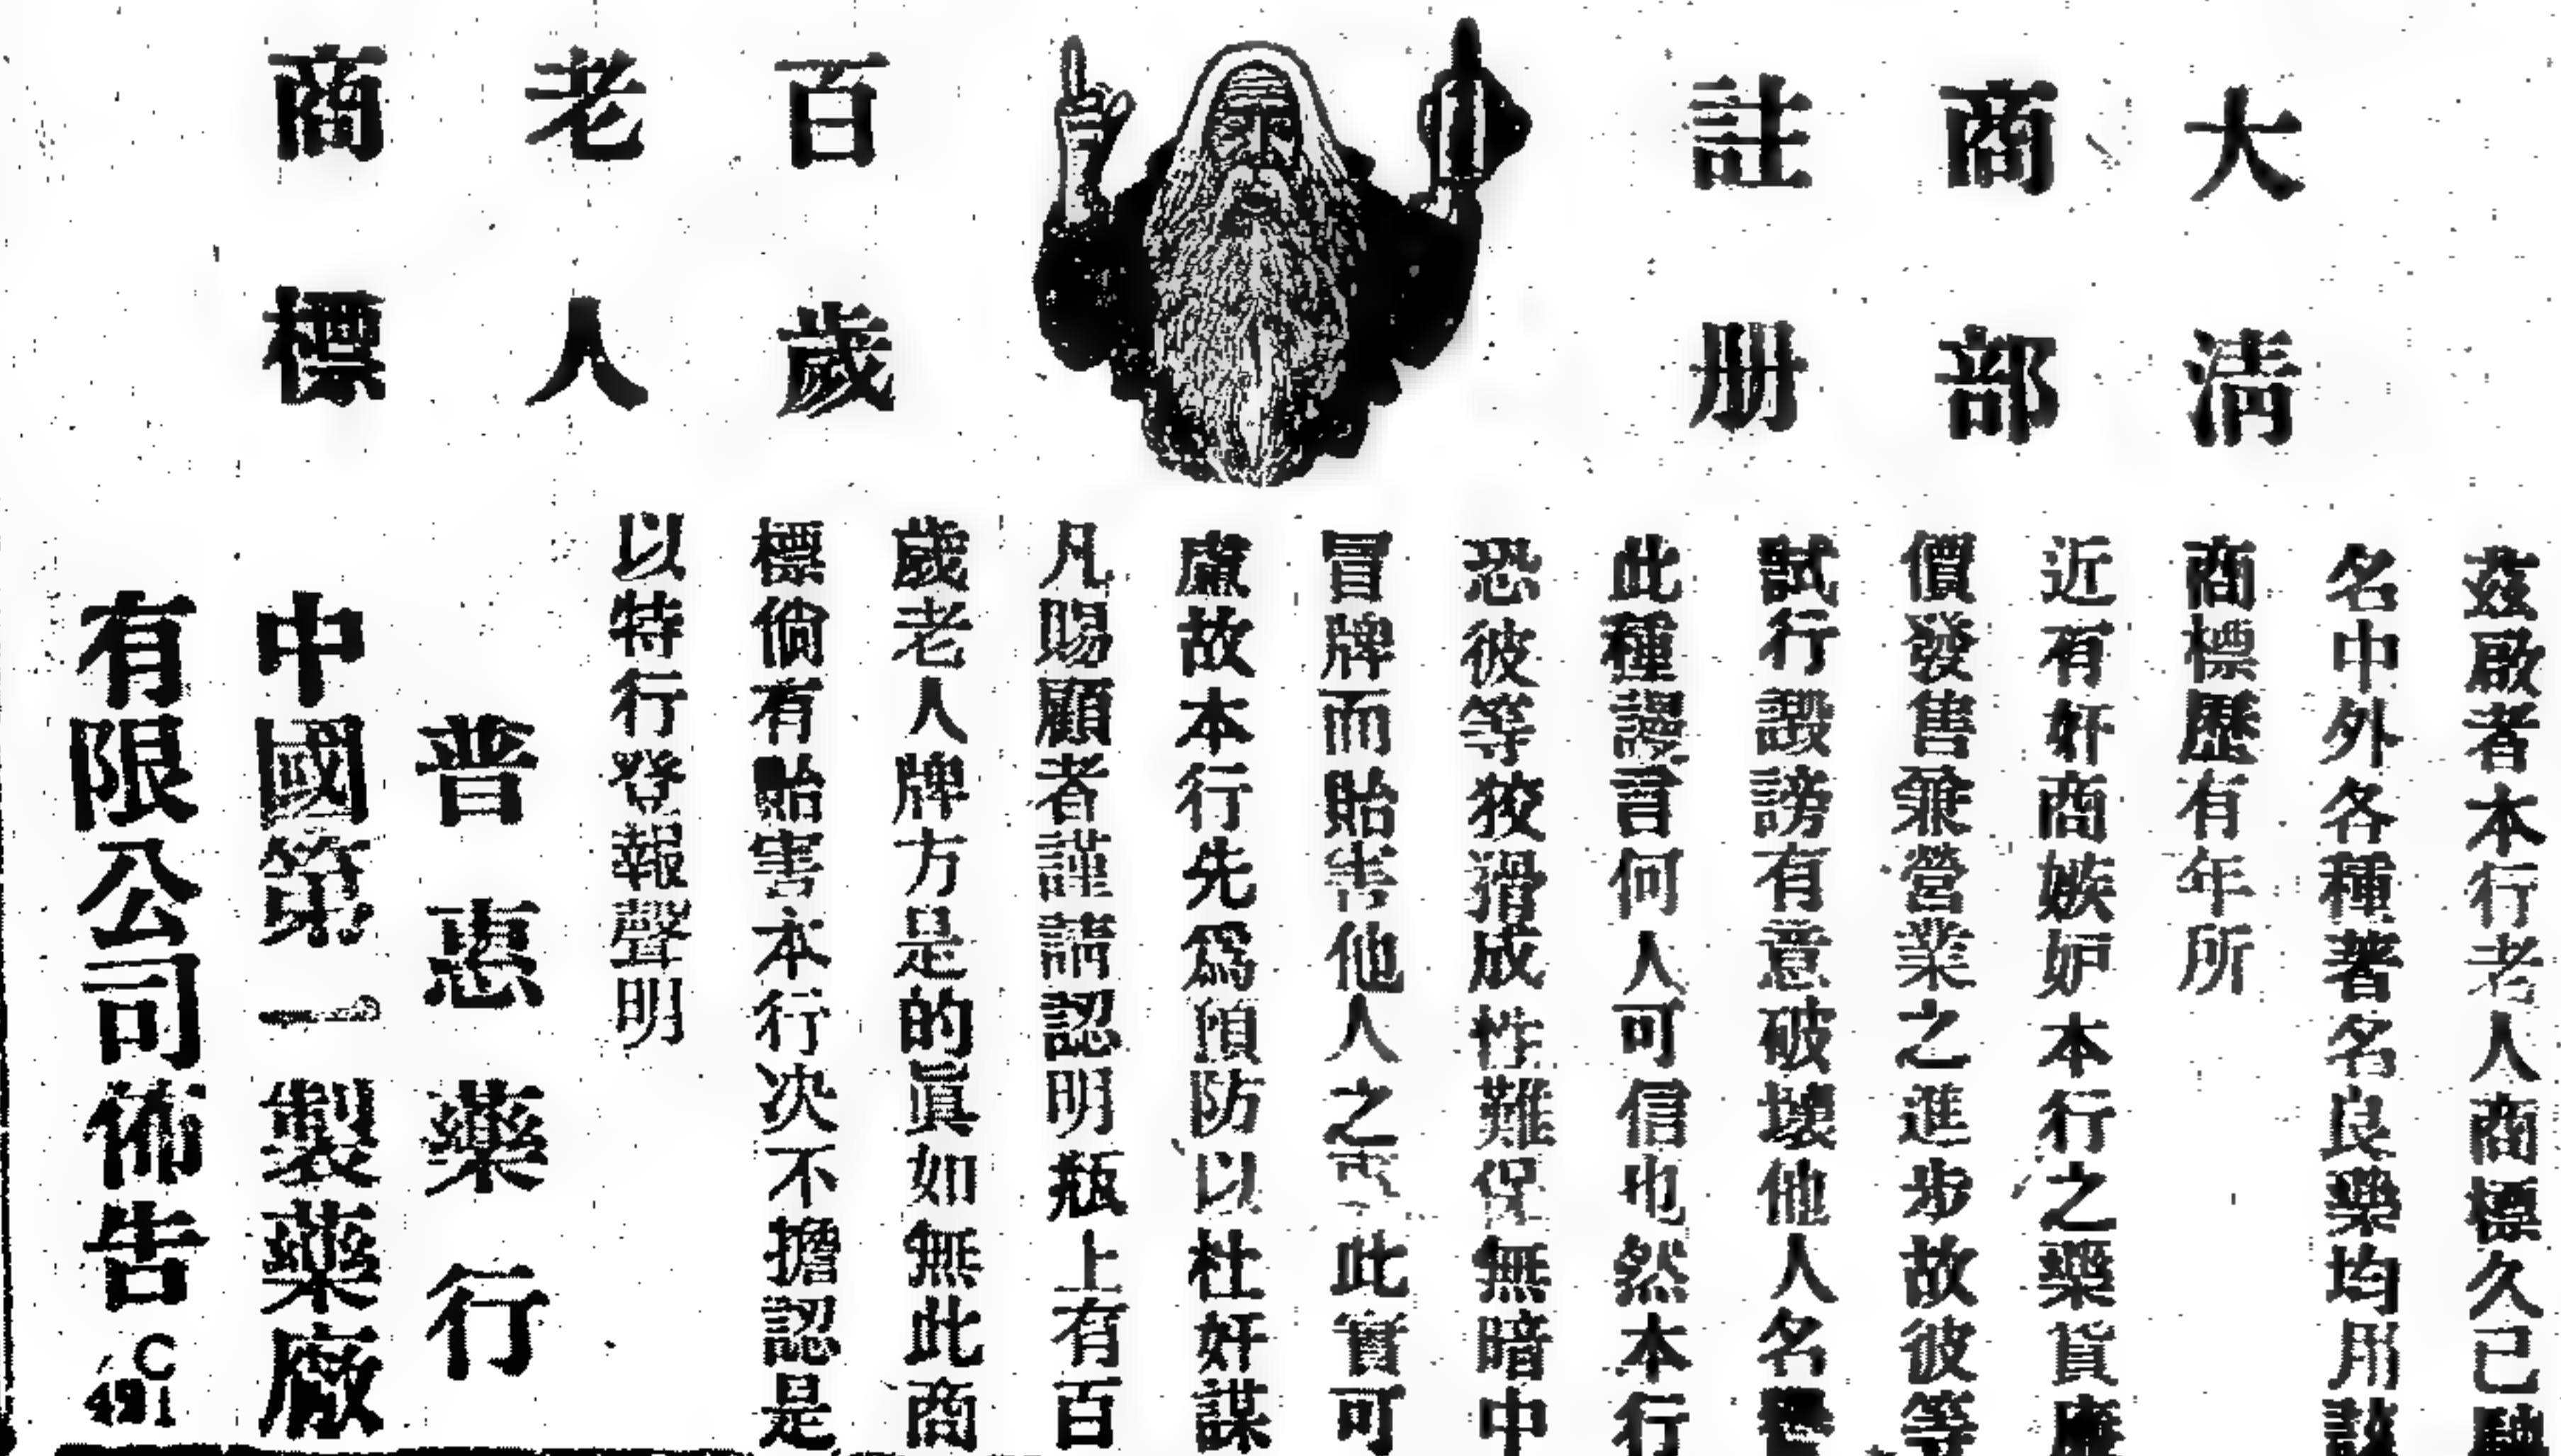 大清
商部
註册
百歲
老人
商標
茲啟者本行老人商標久已馳
名中外各種著名良藥均用該
商標歷有年所
近有奸商嫉妒本行之藥貨廉
價發售兼營業之進步故彼等
試行譭謗有意破壞他人名譽
此種謬言何人可信也然本行
恐彼等狡猾成性難保無暗中
冒牌而貽害他人之 此實可
慮故本行先爲預防以杜奸謀
凡賜顧者謹請認明瓶上有百
歲老人牌方是的眞如無此商
標倘有貽害本行決不擔認是
以特行登報聲明
普惠藥行
中國第一製藥廠
有限公司佈告
C
491